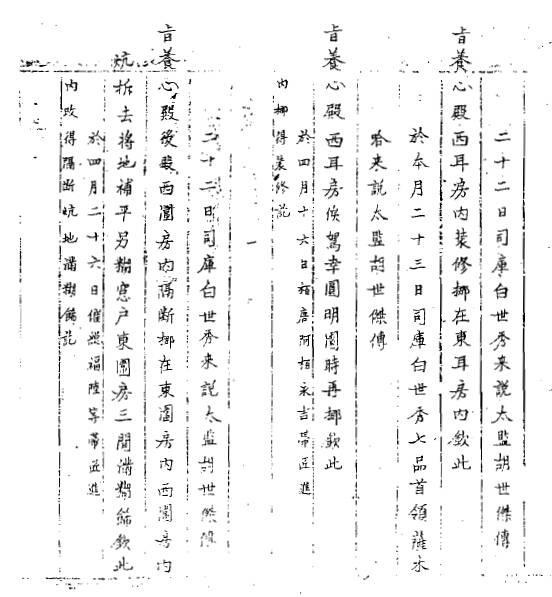 二十二日司庫白世秀来説太監胡世傑傳
旨養心殿西耳房内装修挪在東耳房内欽此
於本月二十三日司庫白世秀七品首領薩木
哈来説太監胡世傑傳
旨養心殿西耳房俟駕幸圓明園時再挪欽此
於四月十六日栢唐阿栢永吉帶匠進
内挪得装修訖
二十二日司庫白世秀来説太監胡世傑傳
旨養心殿後殿西圍房内隔断挪在東圍房内西圍房内
炕拆去將地補平另糊窓户東圍房三間满糊飾欽此
於四月二十六日催總福陞等帶匠進
内改得隔断炕地满糊飾訖